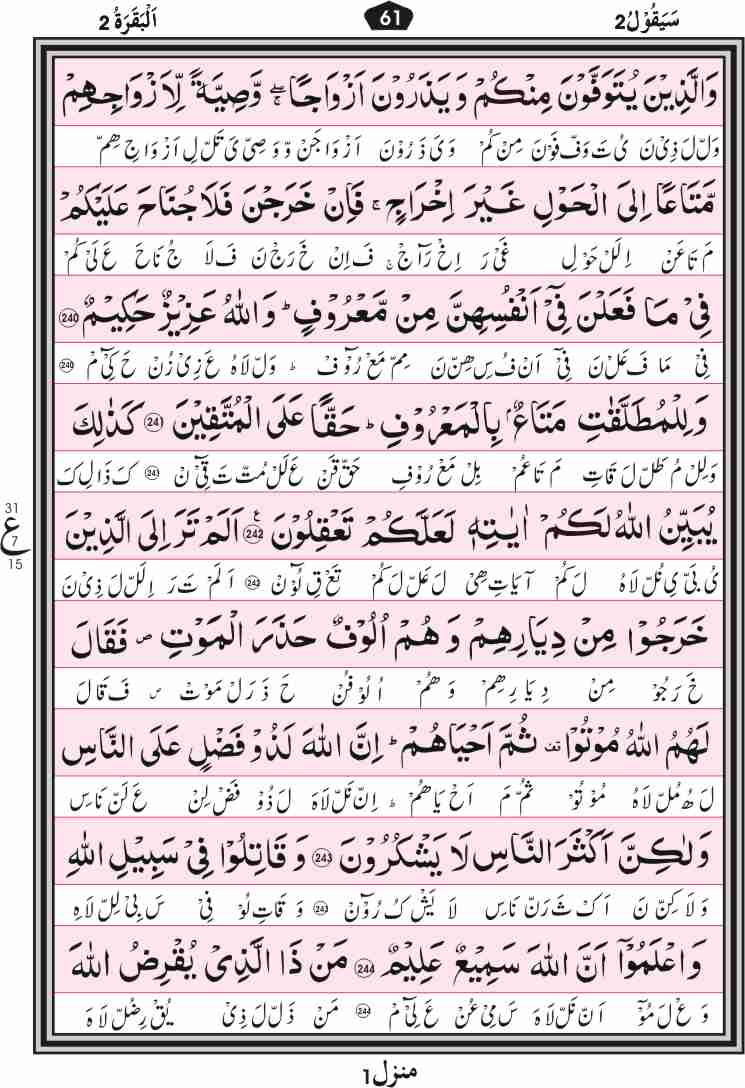 سَيَقُوْلُ2 61 اَلْبَقَرَةُ 2
وَالَّذِيْنَ يُتَوَفَّوْنَ مِنْكُمْ وَيَذَرُوْنَ اَزْوَاجًا ۖۚ وَّصِيَّةً لِّاَزْوَاجِهِمْ
وَلّ لَ ذِيْ نَ يُ تَ وَفّ فَوْنَ مِنْ كُمْ وَ يَ ذَ رُوْنَ اَزْ وَا جَنْ وّ وَ صِيْ يَ تَلْ لِ اَزْ وَا جِ هِمْ
مَّتَاعًا اِلَى الْحَوْلِ غَيْرَ اِخْرَاجٍ ۚ فَاِنْ خَرَجْنَ فَلَا جُنَاحَ عَلَيْكُمْ
مَ تَا عَنْ اِلَلْ حَوْ لِ غَيْ رَ اِخْ رَآجْ ۚ فَ اِنْ خَ رَجْ نَ فَ لَا جُ نَا حَ عَ لَيْ كُمْ
فِيْ مَا فَعَلْنَ فِيْٓ اَنْفُسِهِنَّ مِنْ مَّعْرُوْفٍ ؕ وَاللّٰهُ عَزِيْزٌ حَكِيْمٌ 240
فِيْ مَا فَ عَلْ نَ فِيْٓ اَنْ فُ سِ هِنّ نَ مِمّ مَعْ رُوْٓ فْ ؕ وَلّ لَا هُ عَ زِيْ زُنْ حَ كِيْٓ مْ 240
وَلِلْمُطَلَّقٰتِ مَتَاعٌۢ بِالْمَعْرُوْفِ ؕ حَقًّا عَلَى الْمُتَّقِيْنَ 241 كَذٰلِكَ
وَلِلْ مُ طَلّ لَ قَاتِ مَ تَا عُمْ بِلْ مَعْ رُوْفِ حَقّ قَنْ عَ لَلْ مُتّ تَ قِيْٓ نْ 243 كَ ذَالِ كَ
يُبَيِّنُ اللّٰهُ لَكُمْ اٰيٰتِهٖ لَعَلَّكُمْ تَعْقِلُوْنَ 242 ࣖ اَلَمْ تَرَ اِلَى الَّذِيْنَ
31
ع
7
15
يُ بَيْ يِ نُلّ لَا هُ لَ كُمْ آ يَاتِ هِيْ لَ عَلّ لَ كُمْ تَعْ قِ لُوْٓ نْ 242 اَ لَمْ تَ رَ اِلَلّ لَ ذِيْ نَ
خَرَجُوْا مِنْ دِيَارِهِمْ وَهُمْ اُلُوْفٌ حَذَرَ الْمَوْتِ ۪ فَقَالَ
خَ رَ جُوْ مِنْ دِ يَا رِ هِمْ وَ هُمْ اُ لُوْ فُنْ حَ ذَ رَ لْ مَوْتْ ۪ فَ قَا لَ
لَهُمُ اللّٰهُ مُوْتُوْا ۫ ثُمَّ اَحْيَاهُمْ ؕ اِنَّ اللّٰهَ لَذُوْ فَضْلٍ عَلَى النَّاسِ
لَ هُ مُلّ لَا هُ مُوْ تُوْ ثُمّ مَ اَحْ يَا هُمْ ؕ اِنّ نَلّ لَا هَ لَ ذُوْ فَضْ لِنْ عَ لَنّ نَاسِ
وَلٰكِنَّ اَكْثَرَ النَّاسِ لَا يَشْكُرُوْنَ 243 وَقَاتِلُوْا فِيْ سَبِيْلِ اللّٰهِ
وَ لَا كِنّ نَ اَكْ ثَ رَنّ نَاسِ لَا يَشْ كُ رُوْٓنْ 243 وَ قَاتِ لُوْ فِيْ سَ بِيْ لِلّ لَا هِ
وَاعْلَمُوْٓا اَنَّ اللّٰهَ سَمِيْعٌ عَلِيْمٌ 244 مَنْ ذَا الَّذِيْ يُقْرِضُ اللّٰهَ
وَ عْ لَ مُوْٓ اَنّ نَلّ لَا هَ سَ مِيْ عُنْ عَ لِيْٓ مْ 244 مَنْ ذَلّ لَ ذِيْ يُقْ رِضُلّ لَا هَ
منزل1